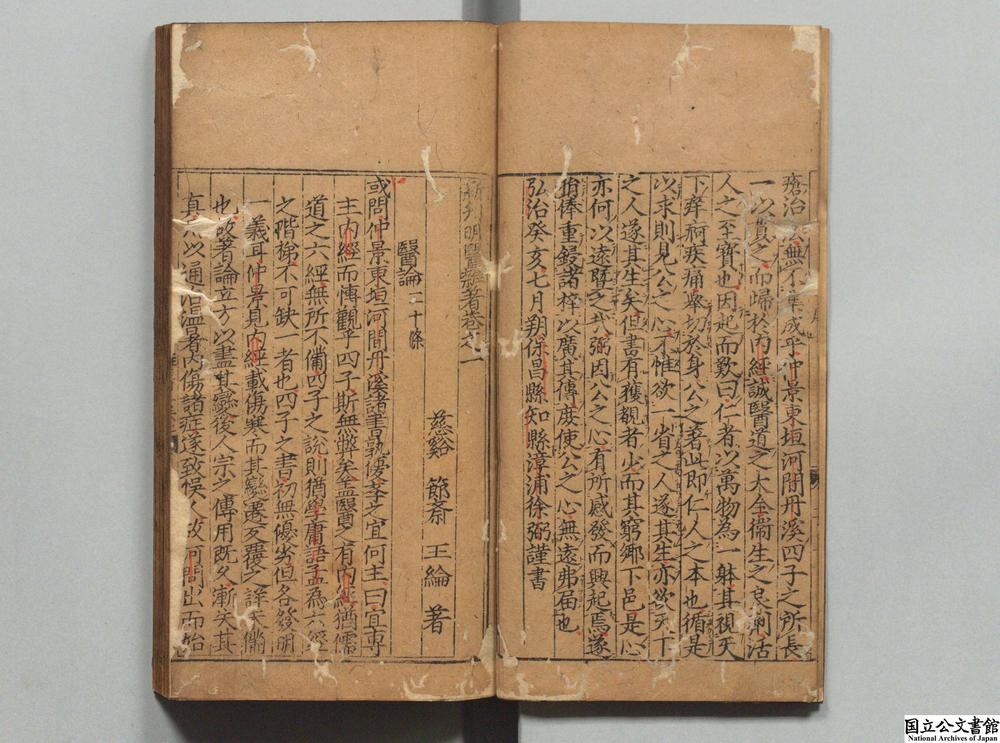 瘡治無不集成乎仲景東垣河間丹溪四子之所長
一以貫之而歸於內經誠醫道之大全衞生之良劑活
人之至寶也因起而歎曰仁者以萬物為一躰其視天
下痒痾疾痛舉切於身公之著此即仁人之本也循是
以求則見公之心不惟欲一省之人遂其生亦欲天下
之人遂其生矣但書有獲覩者少而其窮鄉下邑是心
亦何以遠曁之哉弼因公之心有所感發而興起焉遂
捐俸重鋟諸梓以廣其傳庶使公之心無遠弗届也
弘治癸亥七月朔保昌縣知縣漳浦徐弼謹書
新刋明醫雜著卷之一
慈谿 節斎 王綸 著
醫論 二十條
或問仲景東垣河間丹溪諸書孰優孝之宜何主曰宜專
主內經而慱觀乎四子斯無弊矣盖醫之有內經猶儒
道之六經無所不備四子之說則猶學庸語孟為六經
之階梯不可缺一者也四子之書初無優劣但各發明
一義耳仲景見內經載傷寒而其變遷反覆之詳未備
也故著論立方以盡其變後人宗之傳用既久漸失其
真以通治温暑內傷諸症遂致悞人故河間出而始
国立公文書館
National Archives of Japan